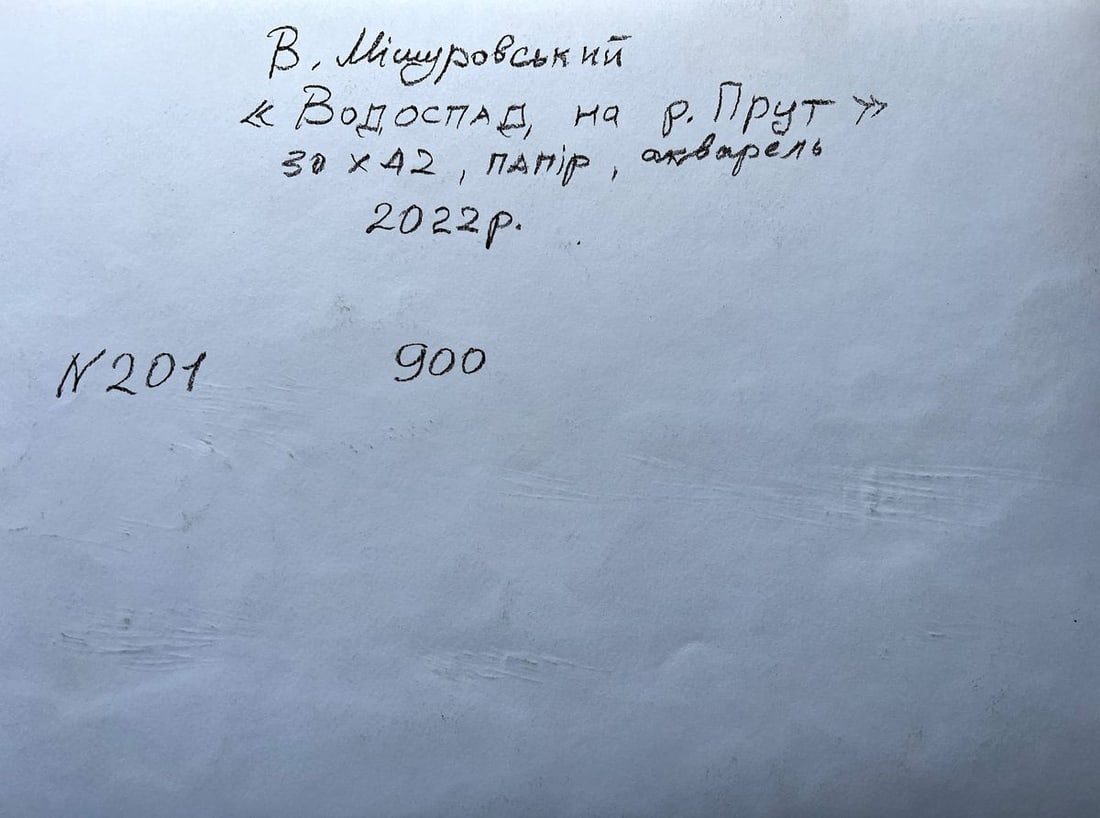 В. Мішуровський
« Водоспад на р. Прут »
30 х 42, папір, акварель
2022р.
N 201 900